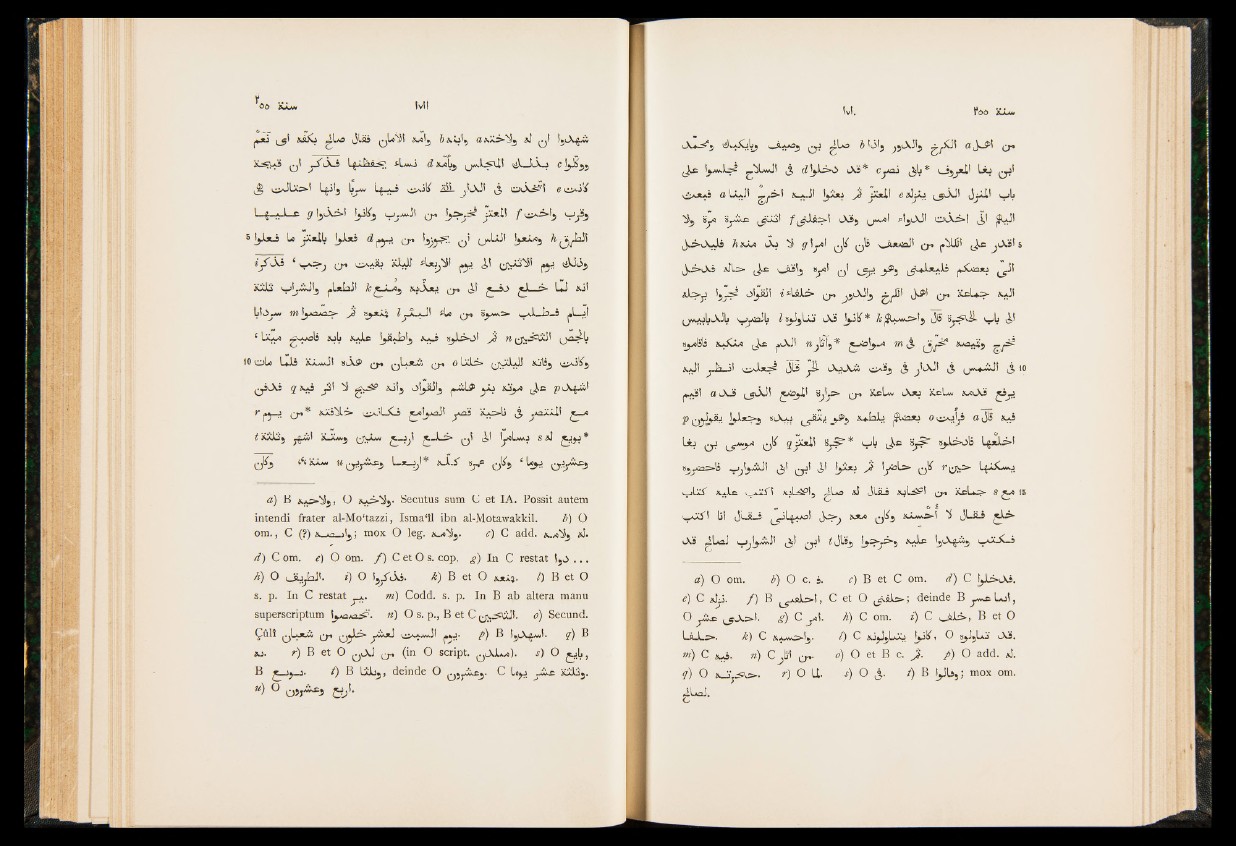 ١٧١٠ سنة ٢٥٥
من اهل a الكرخ والدور واذا b صالح بن وصيف وبايكباك ومحمّد
ابن بغا المعروف *بابى نصر c *قد دخلوا d فى السلاح فجلسوا على
باب المنزل الذى نزله e المعتزّ ثم بعثوا اليه اخرج الينا a فبعث
اليهم انّى اخذت الدواء امس وقد اجفلنى f اثنتى عشرة مرّة ولا
5 اقدر على الكلام من الضعف فان كان امرا g لا بدّ منه h فليدخل
الىّ بعضكم فليعلمنى وهو يرى ان امره واقف على حاله فدخل
اليه جماعة من اهل الكرخ والدور من خلفاء i القوّاد فجرّوا برجله
الى باب الحجرة قال واحسبهم k *كانوا قد تناولوه l بالضرب بالدبابيس
فخرج وقميصه مخرّق فى m مواضع *وآثار n الدم على منكبه فاقاموه
10 فى الشمس فى الدار فى وقت شديد الحرّ قال فجعلت انظر اليه
يرفع قدمه ساعة بعد ساعة من حرارة الموضع الذى قد a اقيم
فيه قال a فرأيت o بعضهم يلطمه وهو يتّقى بيده وجعلوا يقولون p
اخلعها فادخلوه حجرة على باب *حجرة المعتزّ q كان موسى بن بغا
يسكنها حين r كان حاضرا ثم بعثوا الى ابن ابى الشوارب فاحضروه
15 مع s جماعة من اصحابه فقال له صالح واصحابه اكتب عليه كتاب
خلع فقال لا أحسنه وكان معه رجل اصبهانىّ فقال انا اكتب
فكتب وشهدوا عليه وخرجوا وقال t ابن ابى الشوارب لصالح قد
a) O om. b) O c. ف. c) B et C om. d) C فدخلوا.
e) C نزله. f) B, C et O; deinde B,
O احدى عشر. g) C امر. h) C om. i) C خلف, B et O
k) C واحسبه. l) C كانوا يتناولونه, O قد تناولوه.
m) C فيه. n) C من اثر. o) O et B c. ثم. p) O add. له.
q) O حجرته. r) O لما. s) O فى. t) B وقالوا; mox om.
لصالح.
سنة ٢٥٥ ١٧١١
شهدوا ان له ولاخته a وابنه b وامّه الامان فقال صالح بكفّه اى نعم
ووكلوا c بذلك المجلس وبأمّه d نساء يحفظنها فذكر ان قبيحة
كانت e اتّخذت فى الدار التى كانت فيها سربا وانها احتالت هى
وقرب واخت f المعتزّ فخرجوا من السرب وكانوا اخذوا g عليها
5 الطرق h ومنعوا الناس ان يجوزوا من يوم d فعلوا بالمعتزّ ما فعلوا
وذلك يوم الاثنين الى يوم الاربعاء لليلة بقيت من رجب، فذكر i
انه لمّا خلع دفع الى من يعذّبه ومنع k الطعام والشراب ثلثة
ايّام فطلب حسوة من ماء البئر l فمنعوه ثم جصّصوا m سردابا
بالجصّ الثخين n ثم ادخلوه فيه واطبقوا عليه بابه فاصبح ميّتا،
10 وكانت وفاته لليلتين خلتا o من شعبان من هذه السنة فلمّا مات
اشهد p على موته بنو هاشم والقوّاد وانه صحيح لا اثر فيه q فدفن
مع المنتصر فى ناحية قصر الصوامع فكانت خلافته *من يوم r
*بويع له s بسامرّا الى ان خلع اربع سنين وستّة اشهر وثلثة t
وعشرين يوما، وكان عمره كلّه *اربعا وعشرين u سنة، وكان
a) B ولاخيه, O ولاخيه. Secutus sum C et IA. Possit autem
intendi frater al-Mo‘tazzi, Isma‘îl ibn al-Motawakkil. b) O
om., C (?) ; mox O leg. ولامه. c) C add. له ولامه.
d) C om. e) O om. f) C et O s. cop. g) In C restat دوا ...
h) O الطريق. i) O فذكروا. k) B et O. l) B et O
s. p. In C restat ير. m) Codd. s. p. In B ab altera manu
superscriptum. n) O s. p., B et C. o) Secund.
Çûlî يوم السبت لعشر خلون من شعبان. p) B اشهدوا. q) B
به. r) B et O من لدن (in O script.). s) O بايع,
B. t) B وثلثا, deinde O وعشرون. C وثلثة عشر يوما.
u) O اربع وعشرون.